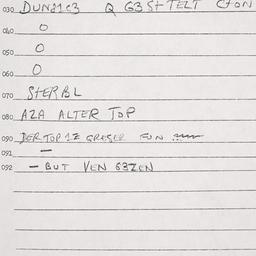 030 DUN21C3 Q G3St TELT CtON
040 O
050 O
060 O
070 StERBL
080 A2A ALTER TOP
090 DER TOP 1Z GRESER FUN
091 —
092 — BUT VEN G3ZEN